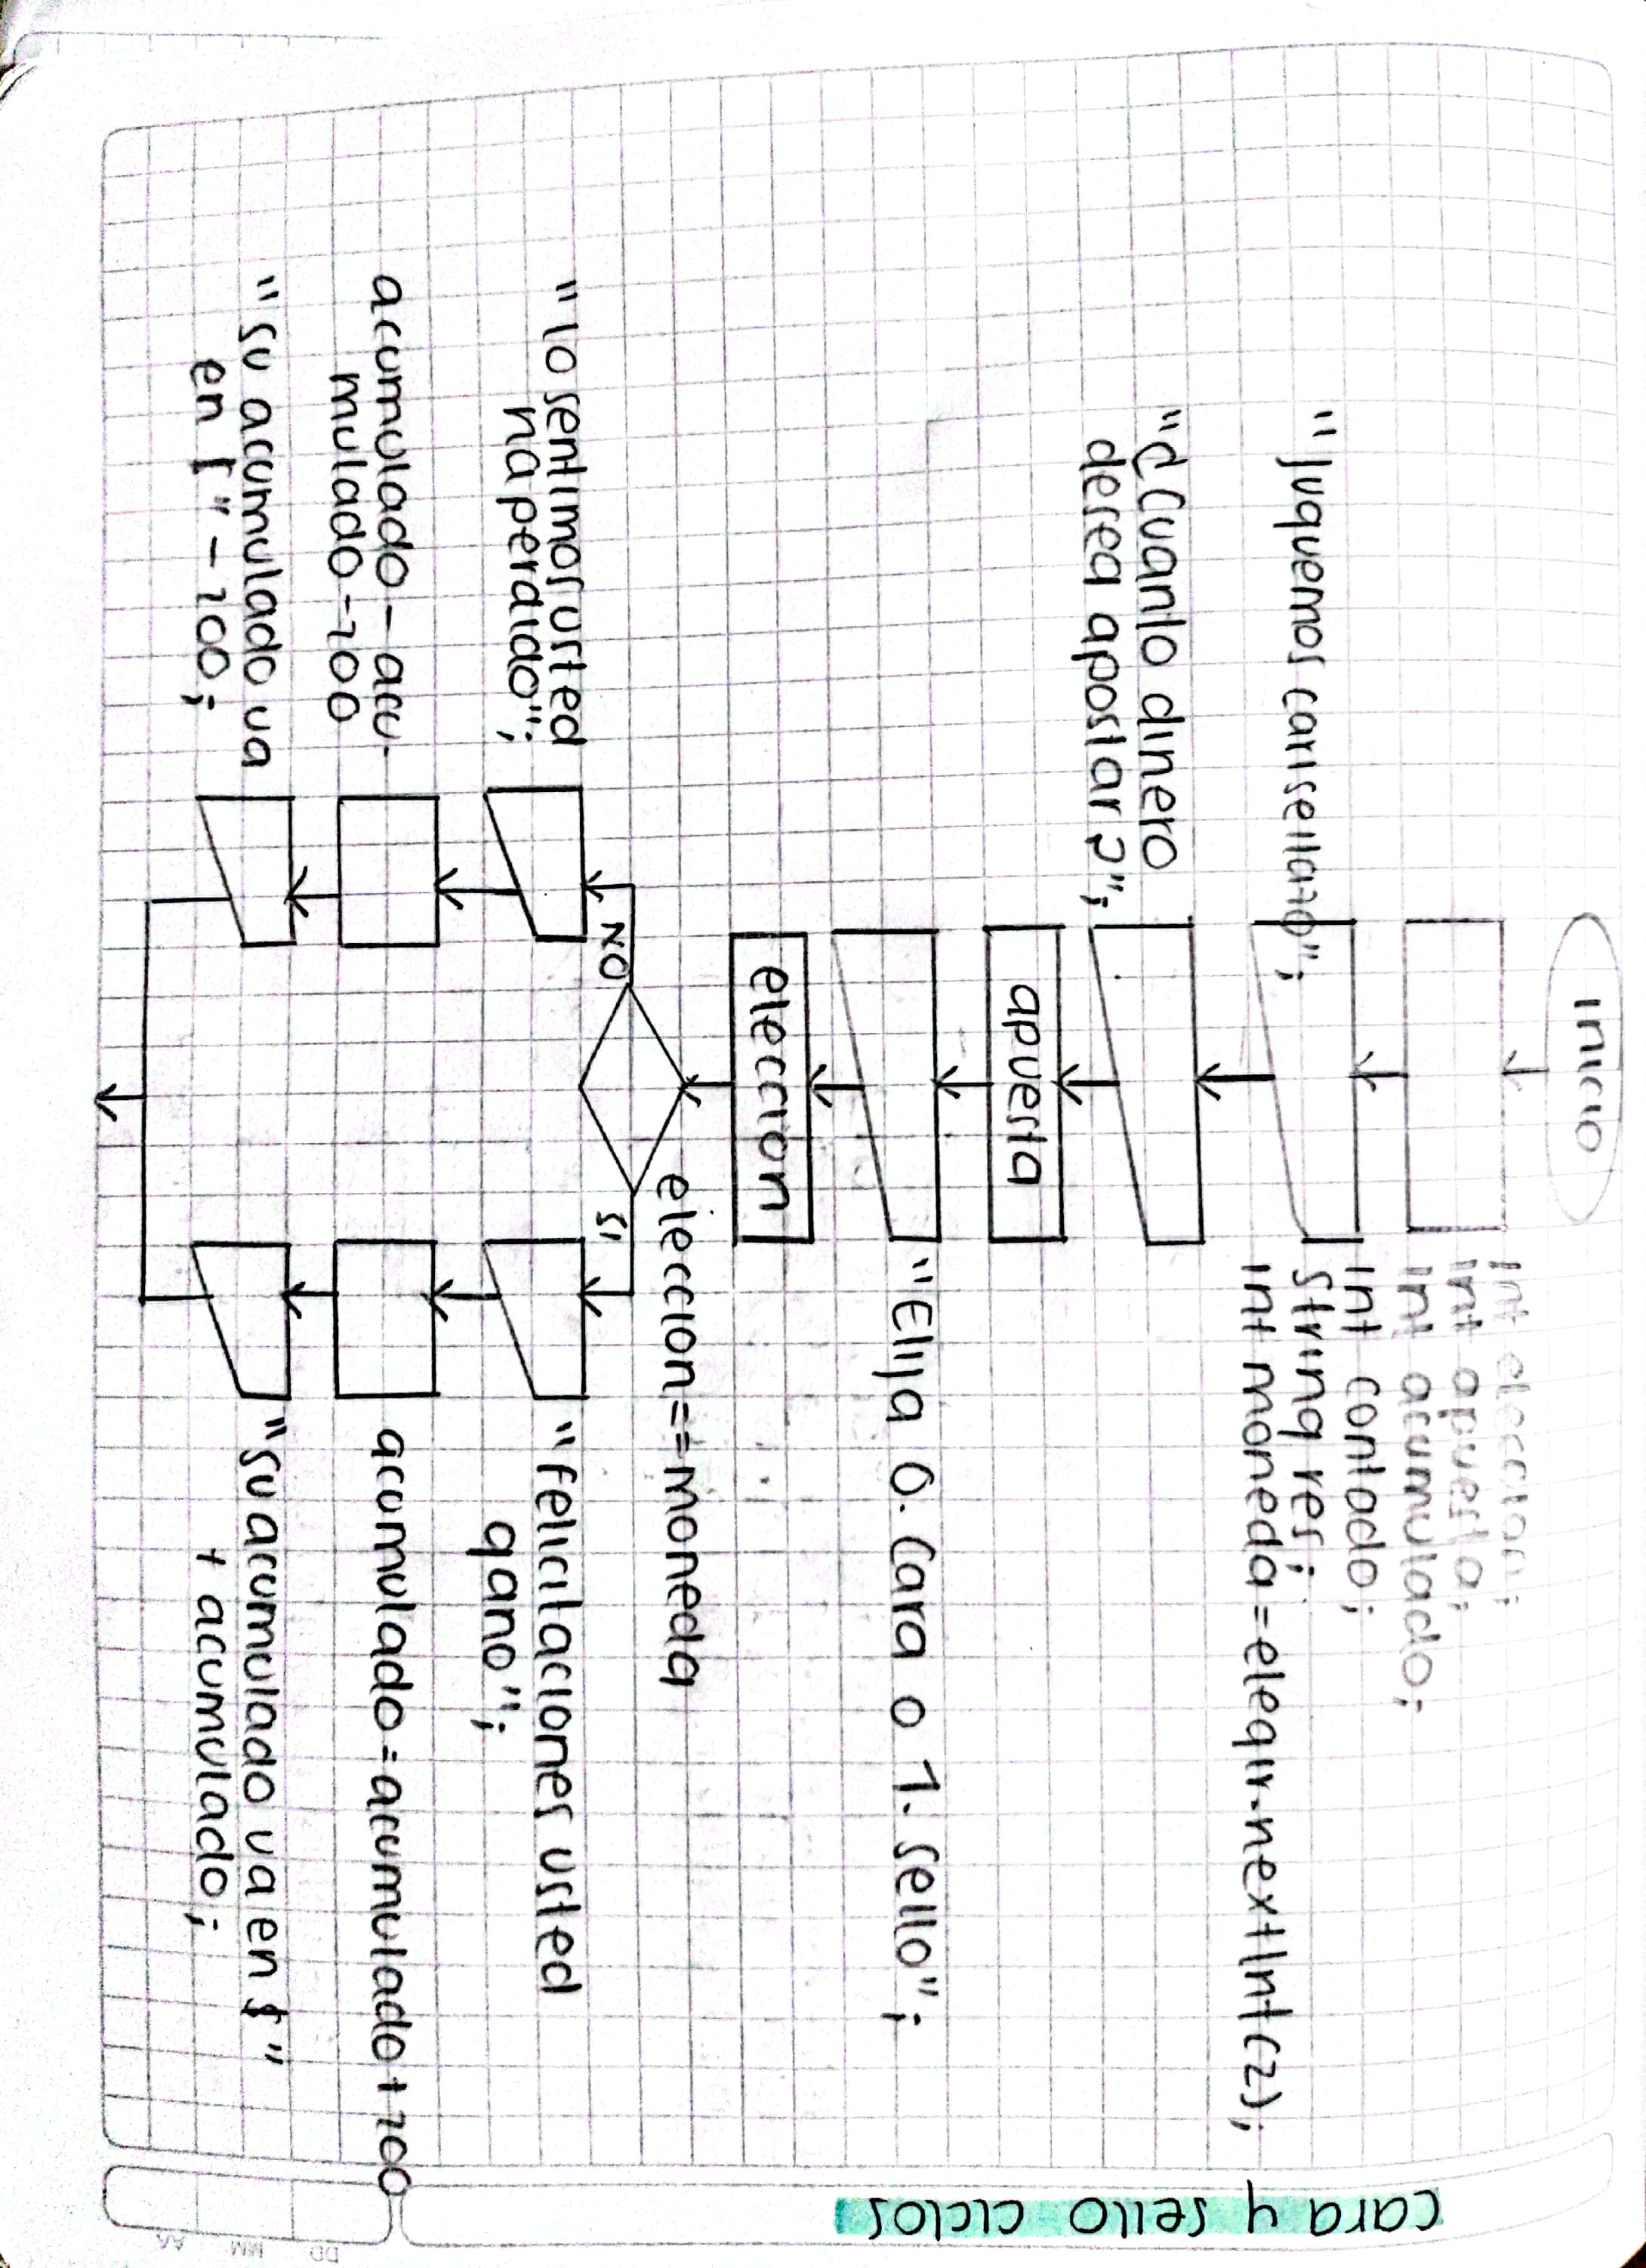 cara y sello ciclos
Inicio
int eleccion;
int apuesta;
int acumulado;
int contado;
String res;
int moneda=elegir.nextInt(2);
"Juguemos carisellazo";
"¿Cuanto dinero
desea apostar?";
apuesta
"Elija 0. Cara o 1. sello";
eleccion
eleccion==moneda
NO
si
"lo sentimos usted
ha perdido";
acumulado-acu-
mulado-100
"su acumulado va
en $"-100;
"felicitaciones usted
gano";
acumulado=acumulado+100
"su acumulado va en $"
+ acumulado;
DD
MM
AA